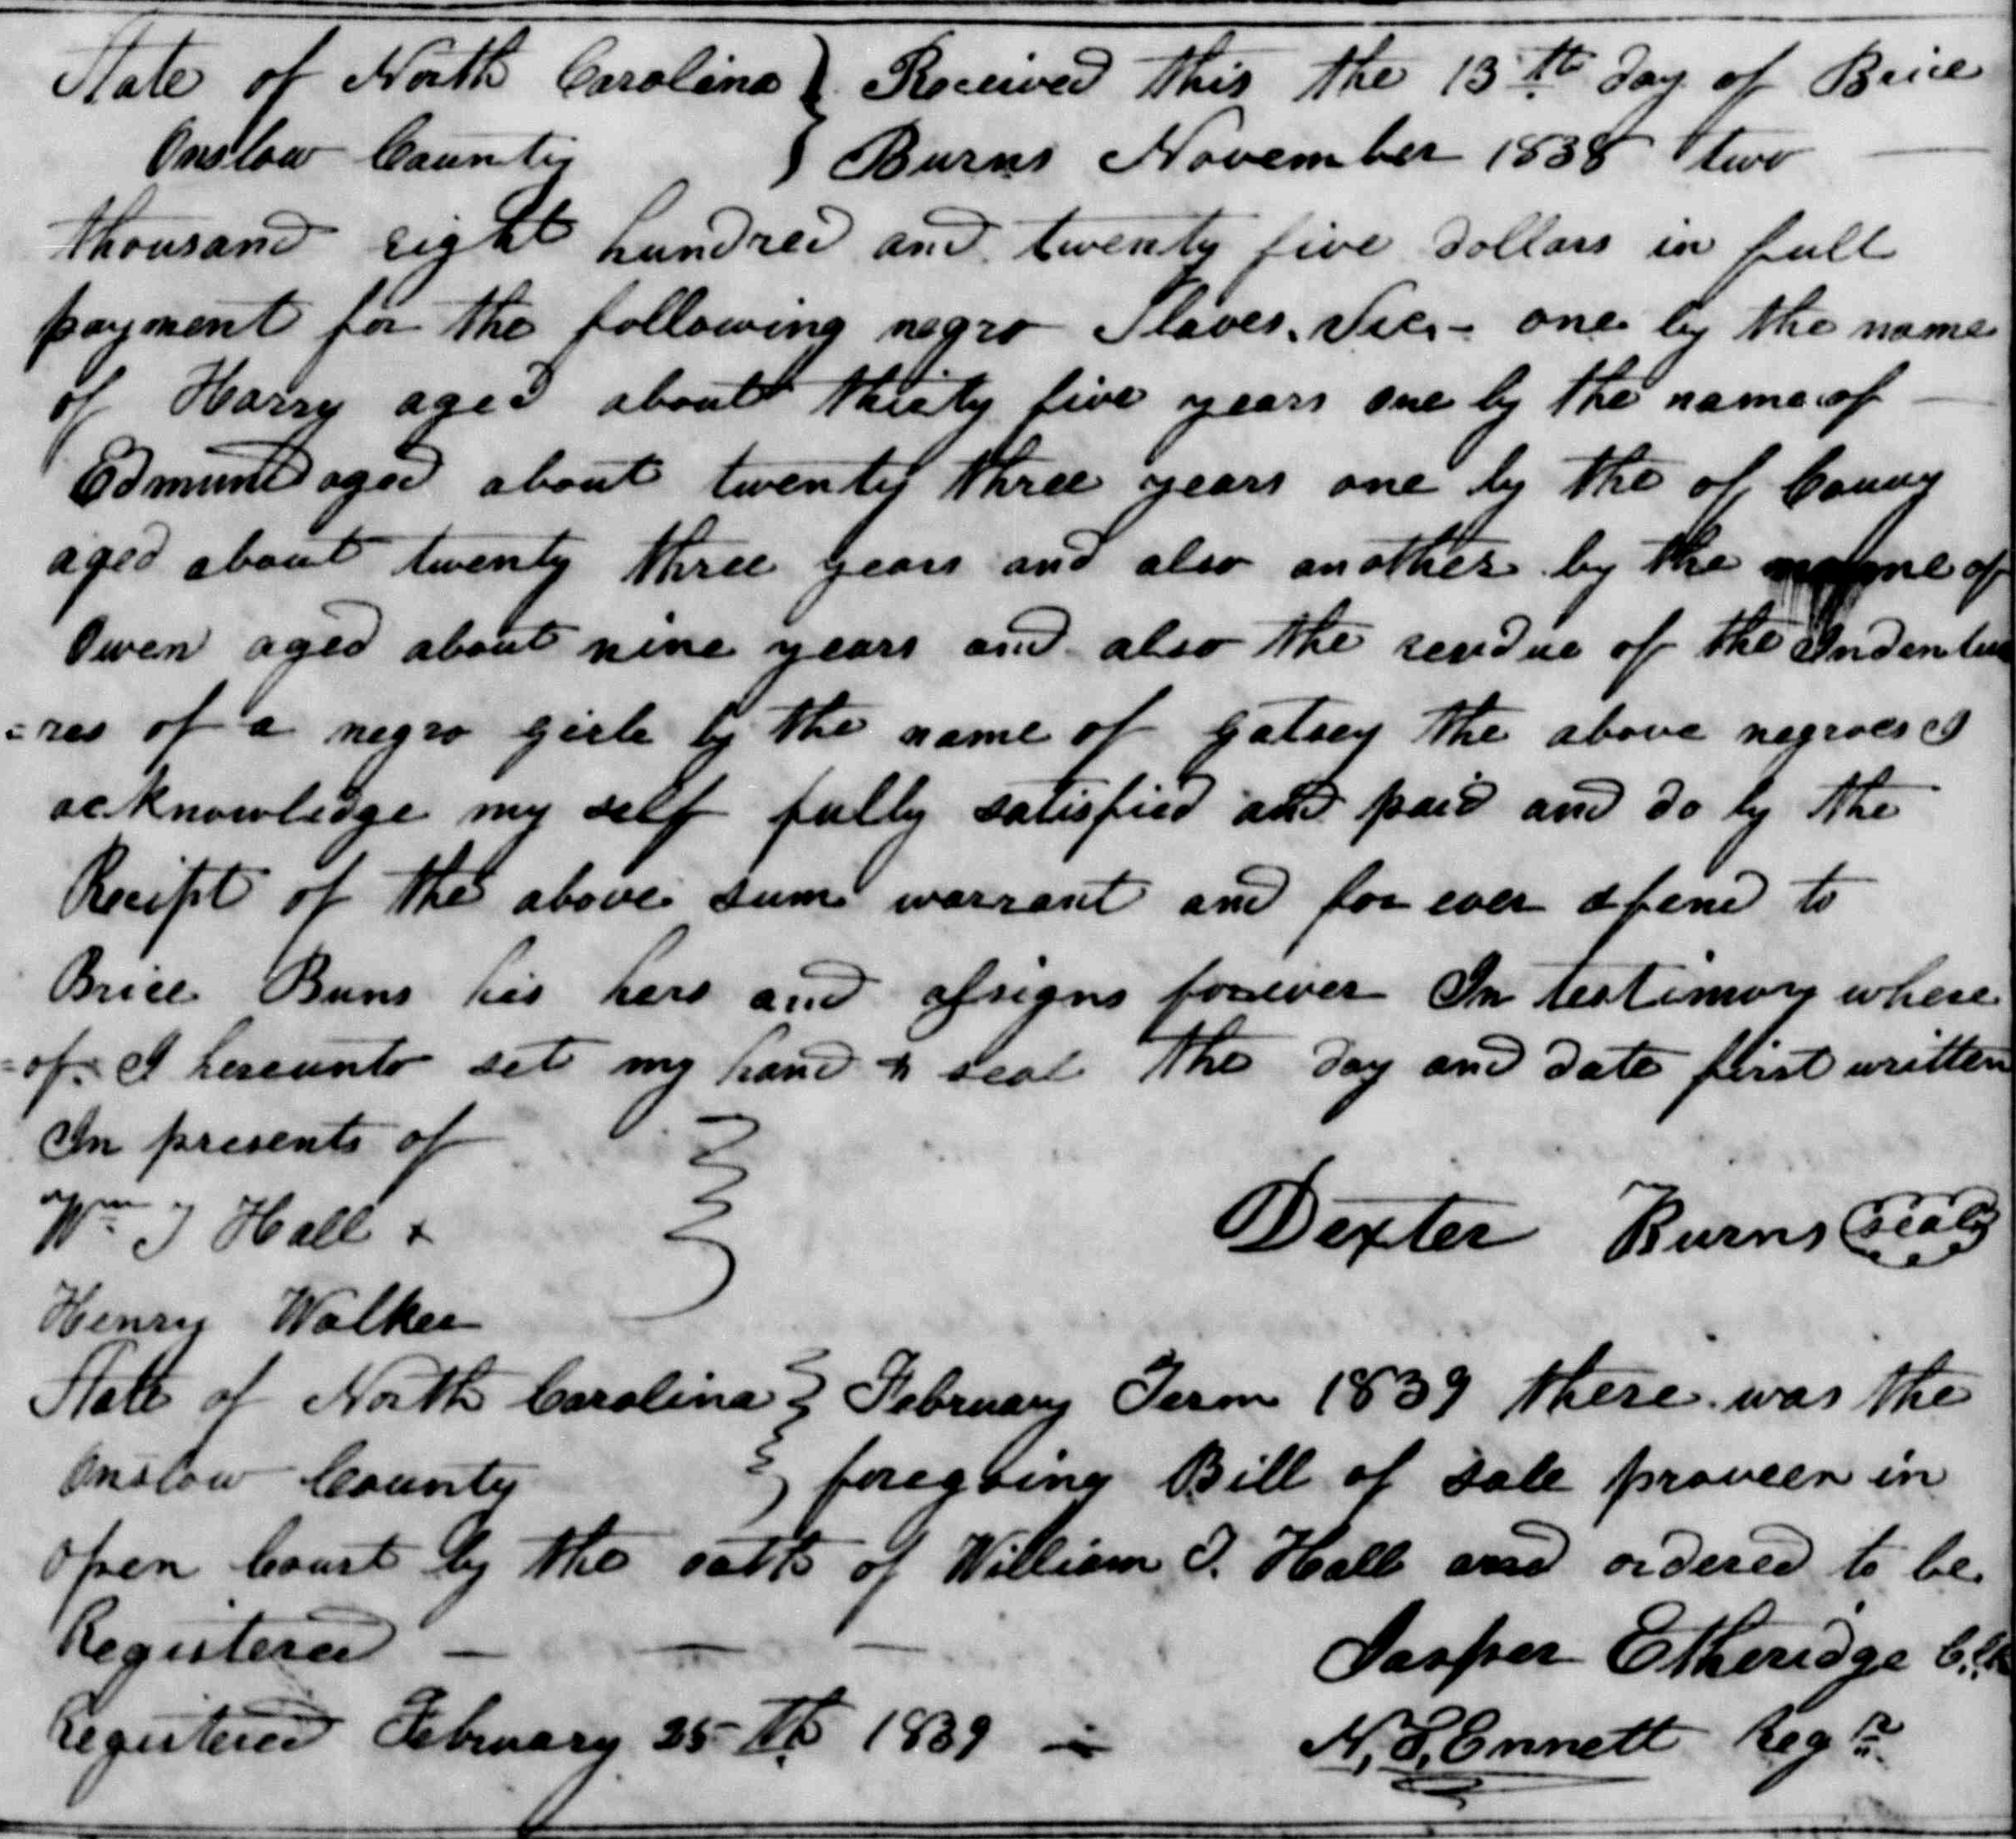 State of North Carolina } Received this the 13th day of Brice
Onslow County } Burns November 1838 two
thousand eight hundred and twenty five dollars in full
payment for the following negro Slaves. Viz - one by the name
of Harry aged about thirty five years one by the name of
Edmund aged about twenty three years one by the of
aged about twenty three years and also another by the name of
Owen aged about nine years and also the residue of the Indentu
=res of a negro girle by the name of gatsey the above negroes I
acknowledge my self fully satisfied and paid and do by the
Receipt of the above sum warrant and for ever defend to
Brice Buns his hers and assigns forever In testimony where
=of I hereunto set my hand & seal the day and date first written
In presents of
Wm J Hall +
Dexter Burns seal
Henry Walker
State of North Carolina } February Term 1839 there was the
Onslow County } foregoing Bill of Sale proveen in
open Court by the oath of William J. Hall and ordered to be
Registered — — —
Jasper Etheridge
Registered February 25th 1839 -
N, E, Ennett Regr